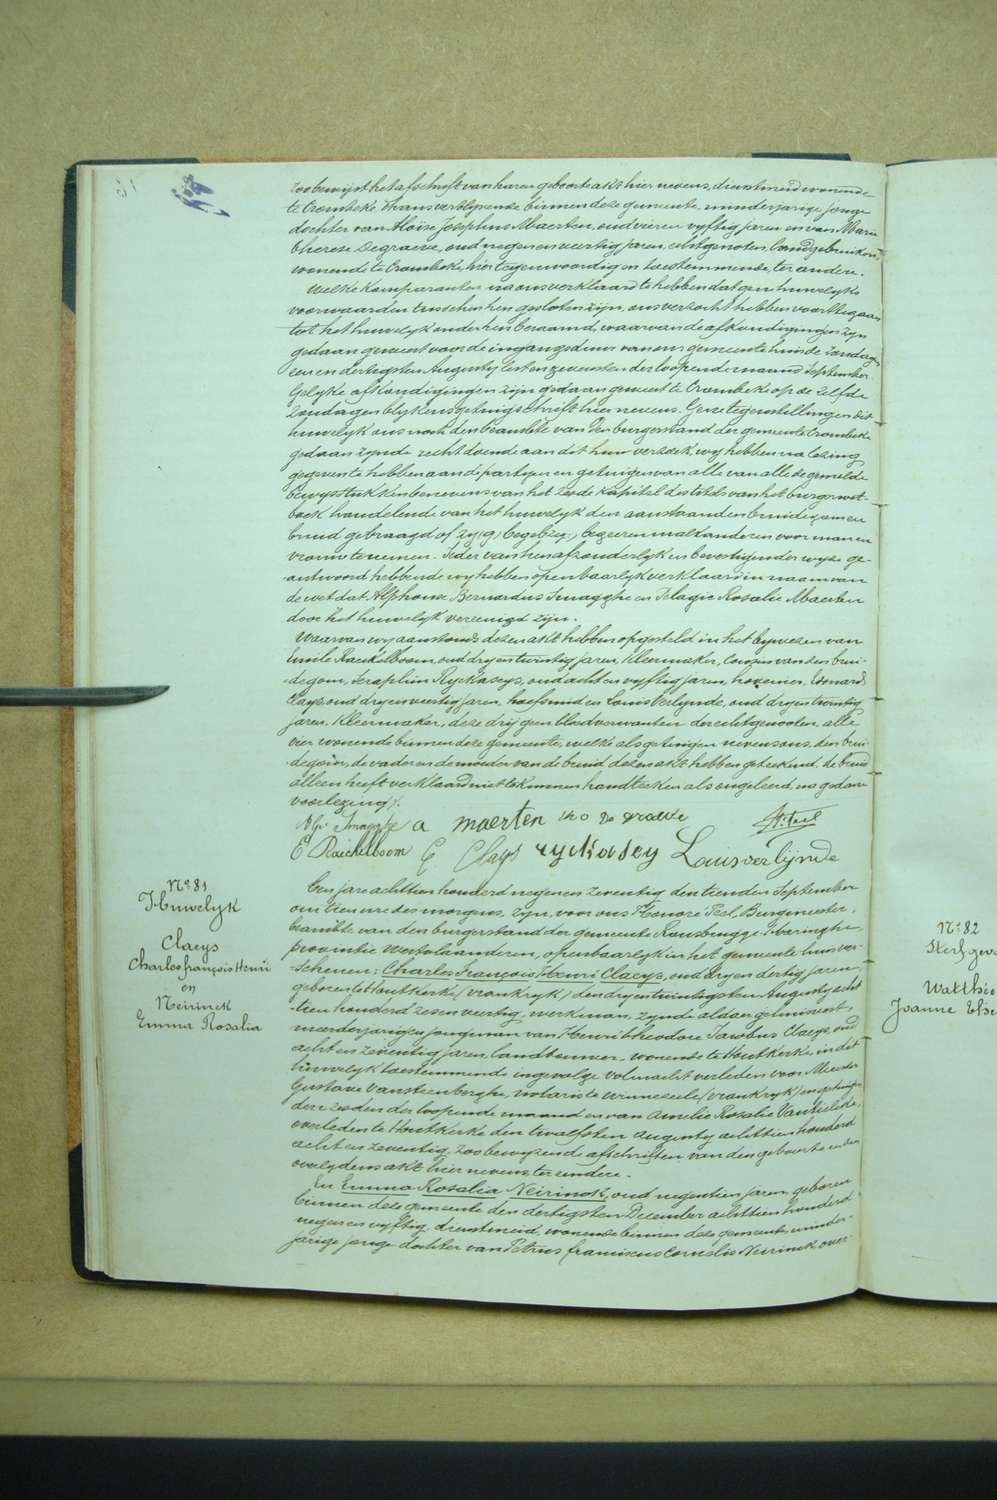 zoo bewyst het afschrift van haren geboorteakt hier nevens, dienstmeid wonende
te Crombeke thans verblyvende binnen deze gemeente, minderjarige jonge
dochter van Aloïse Josephus Maerten, oud vier en vyftig jaren en van Marie
Therese Degraeve, oud negen en veertig jaren, echtgenoten, landgebruikers,
wonende te Crombeke, hier tegenwoordig en toestemmende, ter andere.
Welke komparanten na ons verklaard te hebben dat geen huwelyks
voorwaarden tusschen hen gesloten zyn, ons verzocht hebben voorttegaan
tot het huwelyk onder hen beraamd, waarvan de afkondigingen zyn
gedaan geweest voor de ingangsdeur van ons gemeentehuis de zondagen
een en dertigsten Augusty lesten zevensten der loopende maand September.
Gelyke afkondigingen zyn gedaan geweest te Crombeke op de zelfde
zondagen blykens getuigschrift hier nevens. Geene tegenstellingen dit
huwelyk ons noch den beambte van den burgerstand der gemeente Crombeke
gedaan zynde recht doende aan dit hun verzoek, wy hebben na lezing
gegeven te hebben aan de partyen en getuigen van alle van alle de gemelde
bewysstukken benevens van het zesde kapitel des titels van het burgerwet-
boek handelende van het huwelyk den aanstaanden bruidegom en
bruid gevraagd of zy (9) begeeren malkanderen voor man en
vrouw te nemen. Ieder van hen afzonderlyk en bevestigender wyze ge-
antwoord hebbende wy hebben openbaarlyk verklaard in naam van
de wet dat Alphonse Bernardus Smagghe en Pelagie Rosalie Maerten
door het huwelyk vereenigd zyn.
Waarvan wy aanstonds dezen akt hebben opgesteld in het bywezen van
Emile Raeckelboom, oud dry en twintig jaren, kleermaker, cousyn van den brui-
degom, Seraphin Ryckaseys, oud acht en vyftig jaren, hovenier, Edouard
Claeys, oud dry en veertig jaren, hoefsmid en Louis Verlynde, oud dry en twintig
jaren, kleermaker, deze dry geen bloedverwanten der echtgenooten, alle
vier wonende binnen deze gemeente, welke als getuigen nevens ons, den brui-
degom, de vader en de moeder van de bruid dezen akt hebben geteekend, de bruid
alleen heeft verklaard niet te kunnen handteeken als ongeleerd, na gedane
voorlezing.
Alp. Smagghe a maerten De Graeve
E Raeckelboom E Claeys ryckasey Louis verlijnde
N° 81
Huwelyk
Claeys
Charles françois Henri
en
Neirinck
Emma Rosalia
Een jare achttien honderd negen en zeventig den tienden September
om tien ure des morgens, zyn, voor ons Honoré Peel, Burgmeester,
beambte van den burgerstand der gemeente Rousbrugge-Haringhe,
provintie Westvlaanderen, openbaarlyk in het gemeentehuis ver-
schenen: Charles François Henri Claeys, oud dry en dertig jaren,
geboren te Houtkerke (vrankryk) den dry en twintigsten Augusty acht
tien honderd zes en veertig, werkman, zynde aldaar gehuisvest,
meerderjarigen jongman van Henri Theodore Jacobus Claeys, oud
acht en zeventig jaren, landbouwer, wonende te Houtkerke, in dit
huwelyk toestemmende ingevolge volmacht verleden voor Meester
Gustave Vansteenberghe, notaris te Winnezeele (vrankryk) en getuigen
den zesden der loopende maand en van Amelie Rosalie
overleden te Houtkerke den twaalfsten Augusty achttien honderd
acht en zeventig, zoo bewyzen de afschriften van den geboorte en den
overlydensakt hier nevens ter eendere.
En Emma Rosalia Neirinck, oud negentien jaren, geboren
binnen deze gemeente den dertigsten December achttien honderd
negen en vyftig, dienstmeid, wonende binnen deze gemeente, minder-
jarige jonge dochter van Petrus franciscus Cornelis Neirinck, over-
N° 82
Sterfgeva
Watthie
Joanne